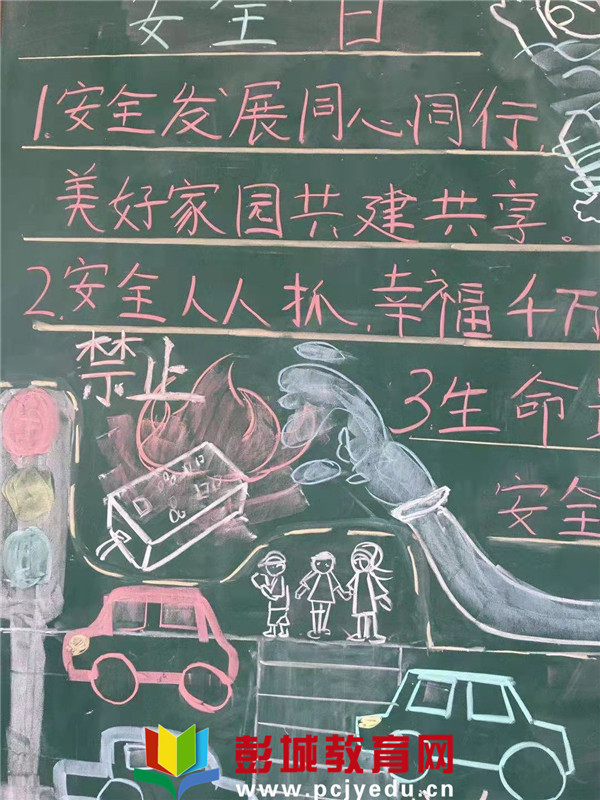 安全日
1.安全发展同心同行,
美好家园共建共享。
2.安全人人抓,幸福千万
禁止
3生命
安全
彭城教育网
www.pcjyedu.cn